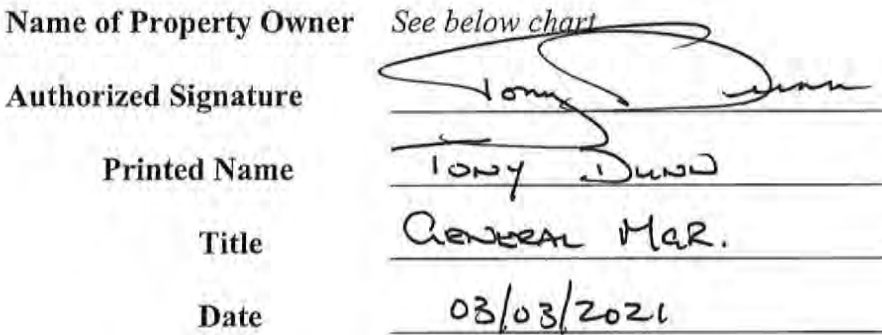 Name of Property Owner See below chart
Authorized Signature Tony Dunn
Printed Name TONY DUNN
Title GENERAL MGR.
Date 03/03/2021